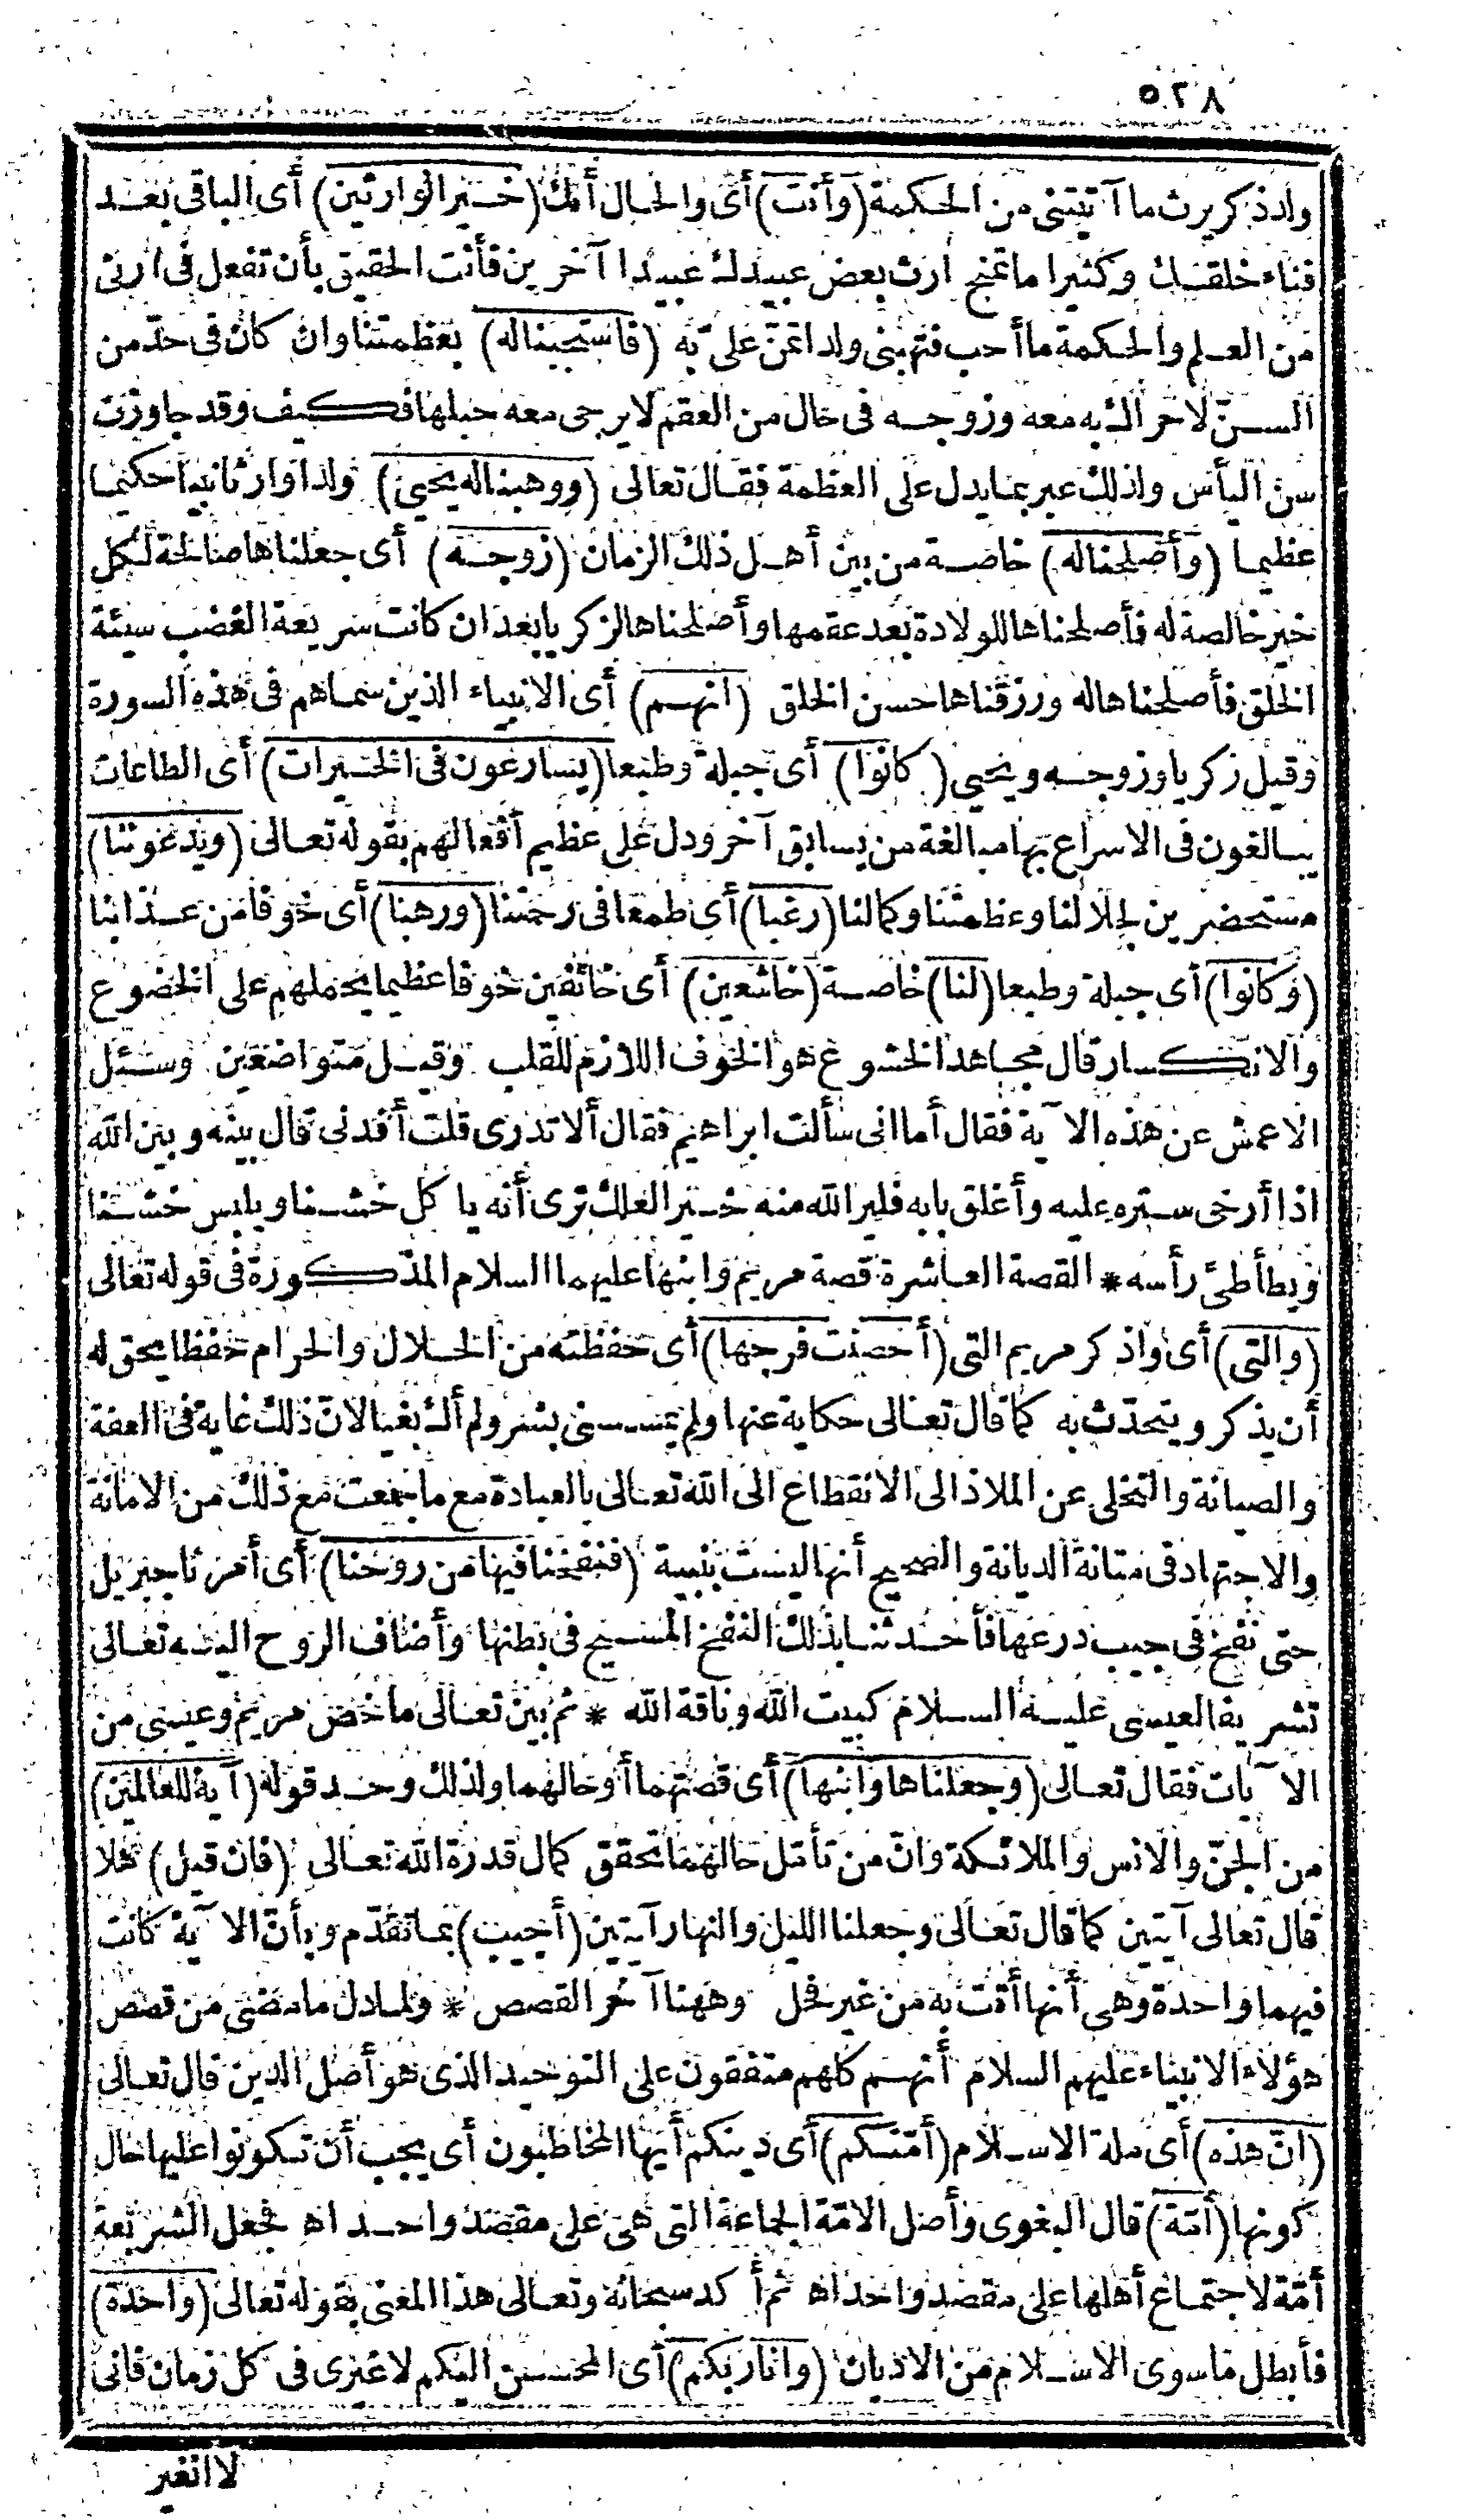 ٥٢٨
ولدذكر يرث ما آتيتنى من الحكمة (وأنت) أى والحال أنك (خير الوارثين) أى الباقى بعد
فناء خلقك وكثيرا ما تمنح ارث بعض عبيدك عبيدا آخرين فأنت الحقيق بأن تفعل فى ارثى
من العلم والحكمة ما أحب فتهبنى ولدا تمن على به (فاستجبنا له) بعظمتنا وان كان فى حد من
السن لا حراك به معه وزوجه فى حال من العقم لا يرجى معه حبلها فكيف وقد جاوزت
سن اليأس ولذلك عبر بما يدل على العظمة فقال تعالى (ووهبنا له يحيى) ولدا وارثا نبيا حكيما
عظيما (وأصلحنا له) خاصة من بين أهل ذلك الزمان (زوجه) أى جعلناها صالحة لكل
خير خالصة له فأصلحناها للولادة بعد عقمها وأصلحناها لزكريا بعد ان كانت سريعة الغضب سيئة
الخلق فأصلحناها له ورزقناها حسن الخلق (انهم) أى الانبياء الذين سماهم فى هذه السورة
وقيل زكريا وزوجه ويحيى (كانوا) أى جبلة وطبعا (يسارعون فى الخيرات) أى الطاعات
يبالغون فى الاسراع بها مبالغة من يسابق آخر ودل على عظيم أفعالهم بقوله تعالى (ويدعوننا)
مستحضرين لجلالنا وعظمتنا وكمالنا (رغبا) أى طمعا فى رحمتنا (ورهبا) أى خوفا من عذابنا
(وكانوا) أى جبلة وطبعا (لنا) خاصة (خاشعين) أى خائفين خوفا عظيما يحملهم على الخضوع
والانكسار قال مجاهد الخشوع هو الخوف اللازم للقلب وقيل متواضعين وسئل
الاعمش عن هذه الآية فقال أما انى سألت ابراهيم فقال ألا تدرى قلت أفدنى قال بينه وبين الله
اذا أرخى ستره عليه وأغلق بابه فلير الله منه خيرا لعلك ترى أنه يأكل خشنا ويلبس خشنا
ويطأطئ رأسه * القصة العاشرة قصة مريم وابنها عليهما السلام المذكورة فى قوله تعالى
(والتى) أى واذكر مريم التى (أحصنت فرجها) أى حفظته من الحلال والحرام حفظا يحق له
أن يذكر ويتحدث به كما قال تعالى حكاية عنها ولم يمسسنى بشر ولم أك بغيا لان ذلك غاية فى العفة
والصيانة والتخلى عن الملاذ الى الانقطاع الى الله تعالى بالعبادة مع ما جمعت مع ذلك من الامانة
والاجتهاد فى متانة الديانة والصحيح أنها ليست بنبية (فنفخنا فيها من روحنا) أى أمرنا جبريل
حتى نفخ فى جيب درعها فأحدثنا بذلك النفخ المسيح فى بطنها وأضاف الروح اليه تعالى
تشريفا لعيسى عليه السلام كبيت الله وناقة الله * ثم بين تعالى ما خص مريم وعيسى من
الآيات فقال تعالى (وجعلناها وابنها) أى قصتهما أو حالهما ولذلك وحد قوله (آية للعالمين)
من الجن والانس والملائكة وان من تأمل حالهما تحقق كمال قدرة الله تعالى (فان قيل) هلا
قال تعالى آيتين كما قال تعالى وجعلنا الليل والنهار آيتين (أجيب) بما تقدم وبأن الآية كانت
فيهما واحدة وهى أنها أتت به من غير فحل وههنا آخر القصص * ولما دل ما مضى من قصص
هؤلاء الانبياء عليهم السلام أنهم كلهم متفقون على التوحيد الذى هو أصل الدين قال تعالى
(ان هذه) أى ملة الاسلام (أمتكم) أى دينكم أيها المخاطبون أى يجب أن تكونوا عليها حال
كونها (أمة) قال البغوى وأصل الامة الجماعة التى هى على مقصد واحد اه فجعل الشريعة
أمة لاجتماع أهلها على مقصد واحد اه ثم أكد سبحانه وتعالى هذا المعنى بقوله تعالى (واحدة)
فأبطل ما سوى الاسلام من الاديان (وانا ربكم) أى المحسن اليكم لا غيرى فى كل زمان فانى
لا اتغير